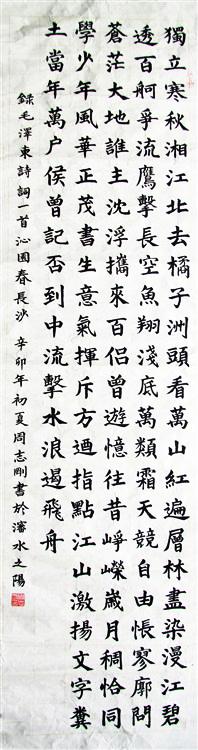 獨立寒秋湘江北去橘子洲頭看萬山紅遍層林盡染漫江碧
透百舸爭流鷹擊長空魚翔淺底萬類霜天競自由悵寥廓問
蒼茫大地誰主沈浮攜來百侶曾遊憶往昔崢嶸歲月稠恰同
學少年風華正茂書生意氣揮斥方遒指點江山激揚文字糞
土當年萬户侯曾記否到中流擊水浪遏飛舟
錄毛澤東詩詞一首沁園春長沙 辛卯年初夏周志剛書於瀋水之陽